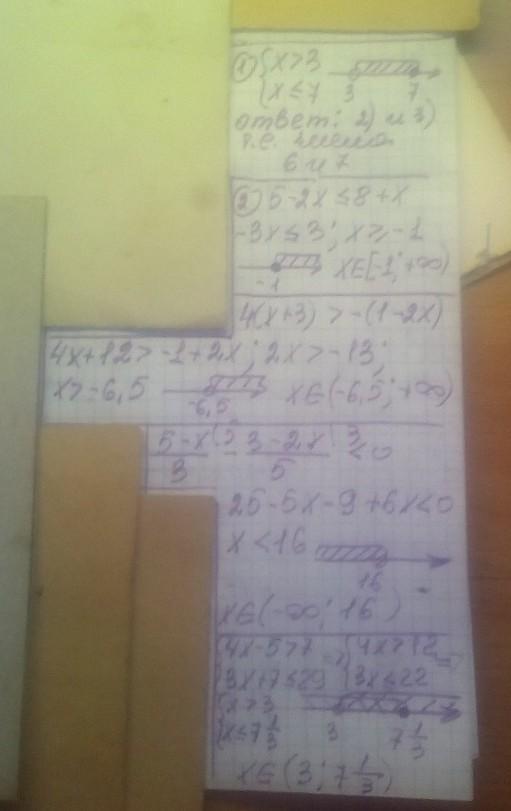 1) { x>3
{ x≤7 3 7
ответ: 2) и 3)
т.е. числа
6 и 7
2) 5-2x≤8+x
-3x≤3; x≥-1
-1 x∈[-1; +∞)
4(x+3)>-(1-2x)
4x+12>-1+2x; 2x>-13;
x>-6,5 -6,5 x∈(-6,5; +∞)
5-x(5 - 3-2x(3 <0
3 5
25-5x-9+6x<0
x<16
16
x∈(-∞; 16)
{ 4x-5>7 => { 4x>12 =>
{ 3x+7≤29 { 3x≤22
{ x>3
{ x≤7 1/3 3 7 1/3
x∈(3; 7 1/3)